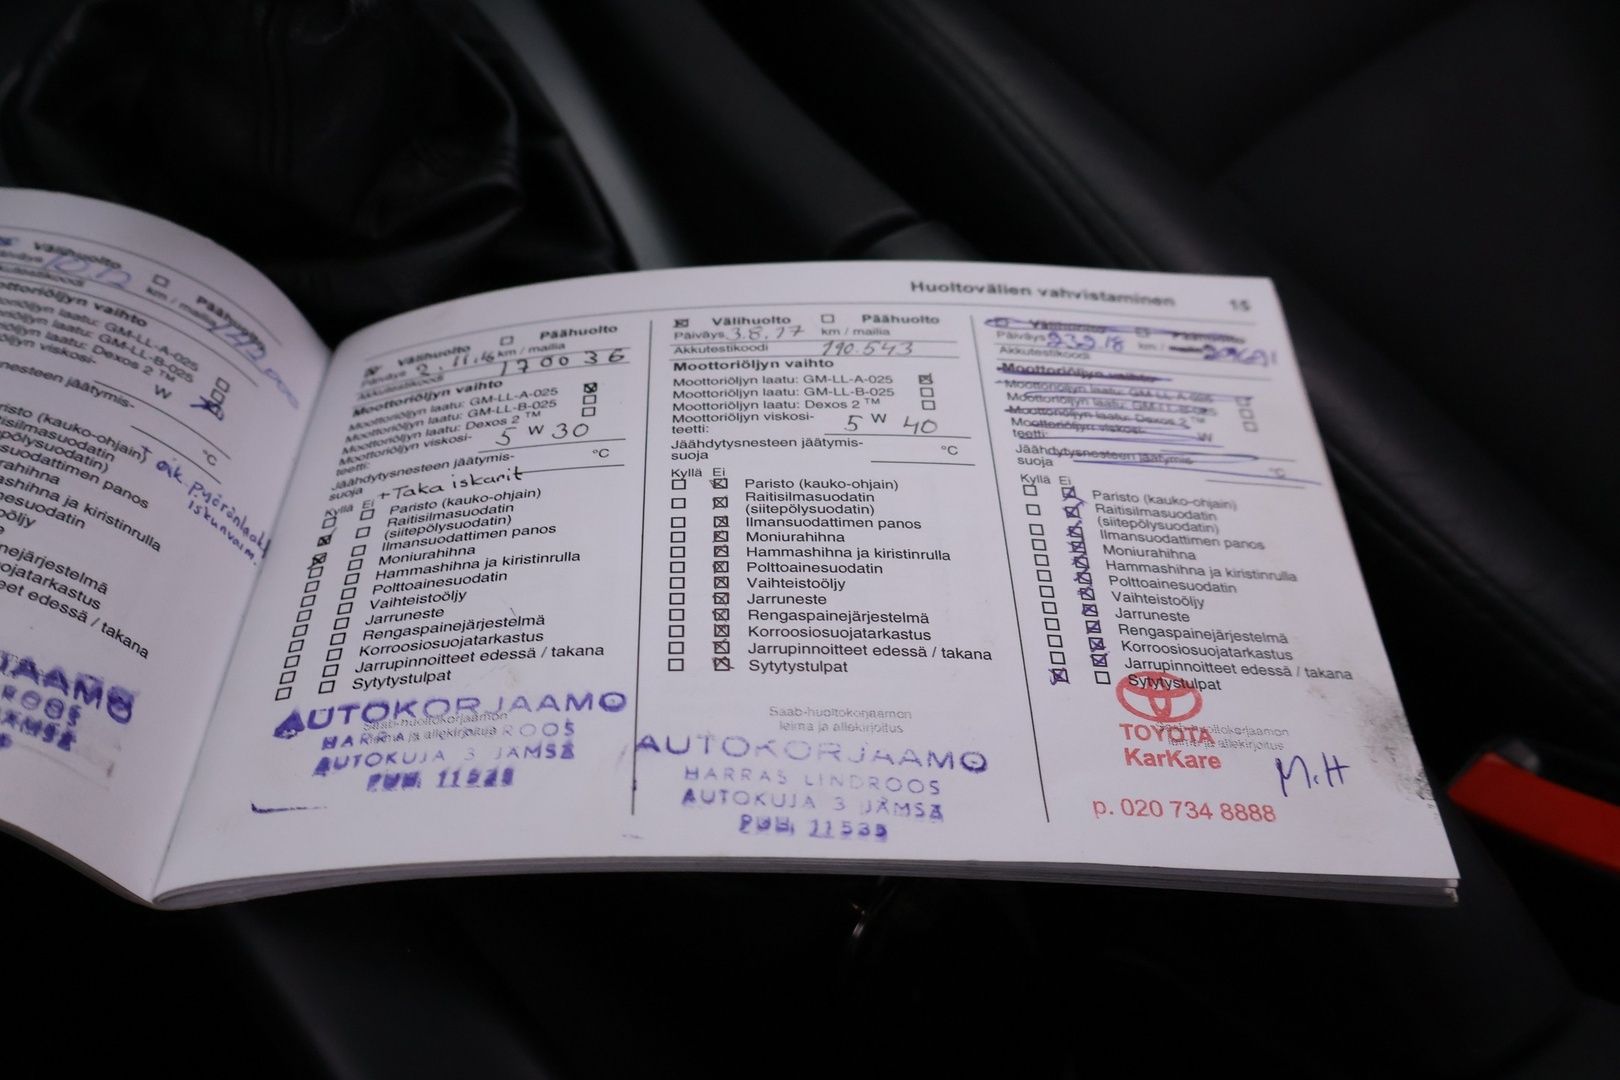 Välihuolto
Päähuolto
km / mailia
Moottoriöljyn vaihto
GM-LL-A-025
GM-LL-B-025
Dexos 2 ™
W
°C
(kauko-ohjain)
moniurahihna
ja kiristinrulla
Jarrupinnoitteet edessä / takana
Huoltovälien vahvistaminen 15
Välihuolto Päähuolto
Päiväys 2.11.16 km / mailia
Akkutestikoodi 170036
Moottoriöljyn vaihto
Moottoriöljyn laatu: GM-LL-A-025
Moottoriöljyn laatu: GM-LL-B-025
Moottoriöljyn laatu: Dexos 2 ™
Moottoriöljyn viskosi-
teetti: 5 W 30
Jäähdytysnesteen jäätymis-
suoja °C
+Taka iskarit
Kyllä Ei
Paristo (kauko-ohjain)
Raitisilmasuodatin
(siitepölysuodatin)
Ilmansuodattimen panos
Moniurahihna
Hammashihna ja kiristinrulla
Polttoainesuodatin
Vaihteistoöljy
Jarruneste
Rengaspainejärjestelmä
Korroosiosuojatarkastus
Jarrupinnoitteet edessä / takana
Sytytystulpat
Saab-huoltokorjaamon
leima ja allekirjoitus
AUTOKORJAAMO
HARRAS LINDROOS
AUTOKUJA 3 JÄMSÄ
Välihuolto Päähuolto
Päiväys 3.8.17 km / mailia
Akkutestikoodi 190.543
Moottoriöljyn vaihto
Moottoriöljyn laatu: GM-LL-A-025
Moottoriöljyn laatu: GM-LL-B-025
Moottoriöljyn laatu: Dexos 2 ™
Moottoriöljyn viskosi-
teetti: 5 W 40
Jäähdytysnesteen jäätymis-
suoja °C
Kyllä Ei
Paristo (kauko-ohjain)
Raitisilmasuodatin
(siitepölysuodatin)
Ilmansuodattimen panos
Moniurahihna
Hammashihna ja kiristinrulla
Polttoainesuodatin
Vaihteistoöljy
Jarruneste
Rengaspainejärjestelmä
Korroosiosuojatarkastus
Jarrupinnoitteet edessä / takana
Sytytystulpat
Saab-huoltokorjaamon
leima ja allekirjoitus
AUTOKORJAAMO
HARRAS LINDROOS
AUTOKUJA 3 JÄMSÄ
PUH. 11535
Välihuolto Päähuolto
Päiväys km / mailia
Akkutestikoodi
Moottoriöljyn vaihto
Moottoriöljyn laatu: GM-LL-A-025
Moottoriöljyn laatu: GM-LL-B-025
Moottoriöljyn laatu: Dexos 2 ™
Moottoriöljyn viskosi-
teetti: W
Jäähdytysnesteen jäätymis-
suoja °C
Kyllä Ei
Paristo (kauko-ohjain)
Raitisilmasuodatin
(siitepölysuodatin)
Ilmansuodattimen panos
Moniurahihna
Hammashihna ja kiristinrulla
Polttoainesuodatin
Vaihteistoöljy
Jarruneste
Rengaspainejärjestelmä
Korroosiosuojatarkastus
Jarrupinnoitteet edessä / takana
Sytytystulpat
Saab-huoltokorjaamon
leima ja allekirjoitus
TOYOTA
KarKare
M.H
p. 020 734 8888